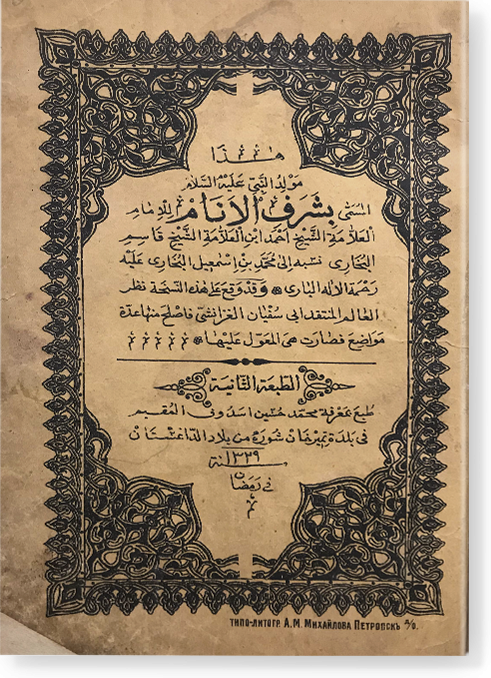 هذا
مولد النبي عليه السلام
المسمى بشرف الانام للامام
العلامة الشيخ احمد ابن العلامة الشيخ قاسم
البخارى نسبه الى محمد بن اسمعيل البخارى عليه
رحمة الاله البارى وقد وقع على هذه النسخة نظر
العالم المنتقد ابى سفيان الغزانشى فاصلح منها عدة
مواضع فصارت هى المعول عليها
الطبعة الثانية
طبع بمعرفة محمد حسين اسدوف المقيم
فى بلدة تمير خان شوره من بلاد الداغستان
سنة ١٣٢٩
في رمضان
Типо-литогр. А. М. Михайлова Петровскъ Д/О.